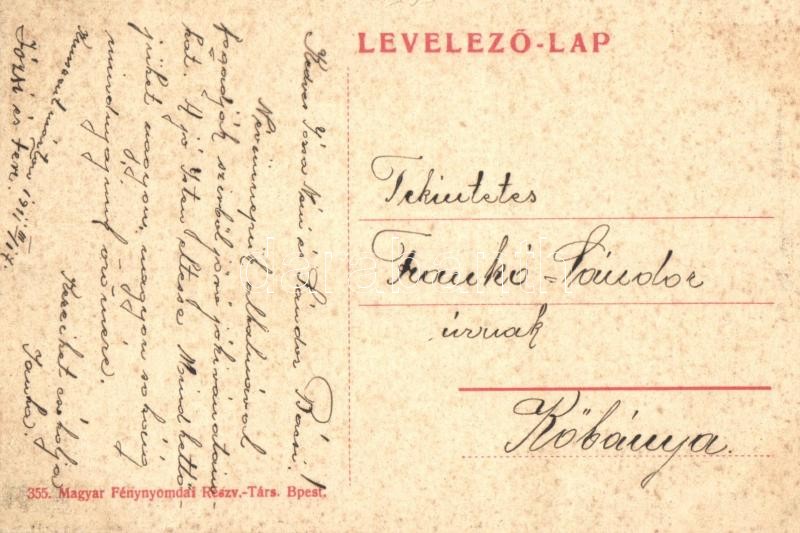 LEVELEZŐ-LAP
Tekintetes
Frankó-Sándor
úrnak
Kőbánya.
Kedves Józsa Néni és Sándor Bácsi!
Névünnepük alkalmával
fogadják szívből jövő jókívánatain-
kat. A jó Isten éltesse Mindkettő-
jüket nagyon, nagyon sokáig
mindnyájunk örömére.
Kezeiket csókolja
Janka.
1911. III/17.
Józsi és Feri.
355. Magyar Fénynyomdai Részv.-Társ. Bpest.
darabanth